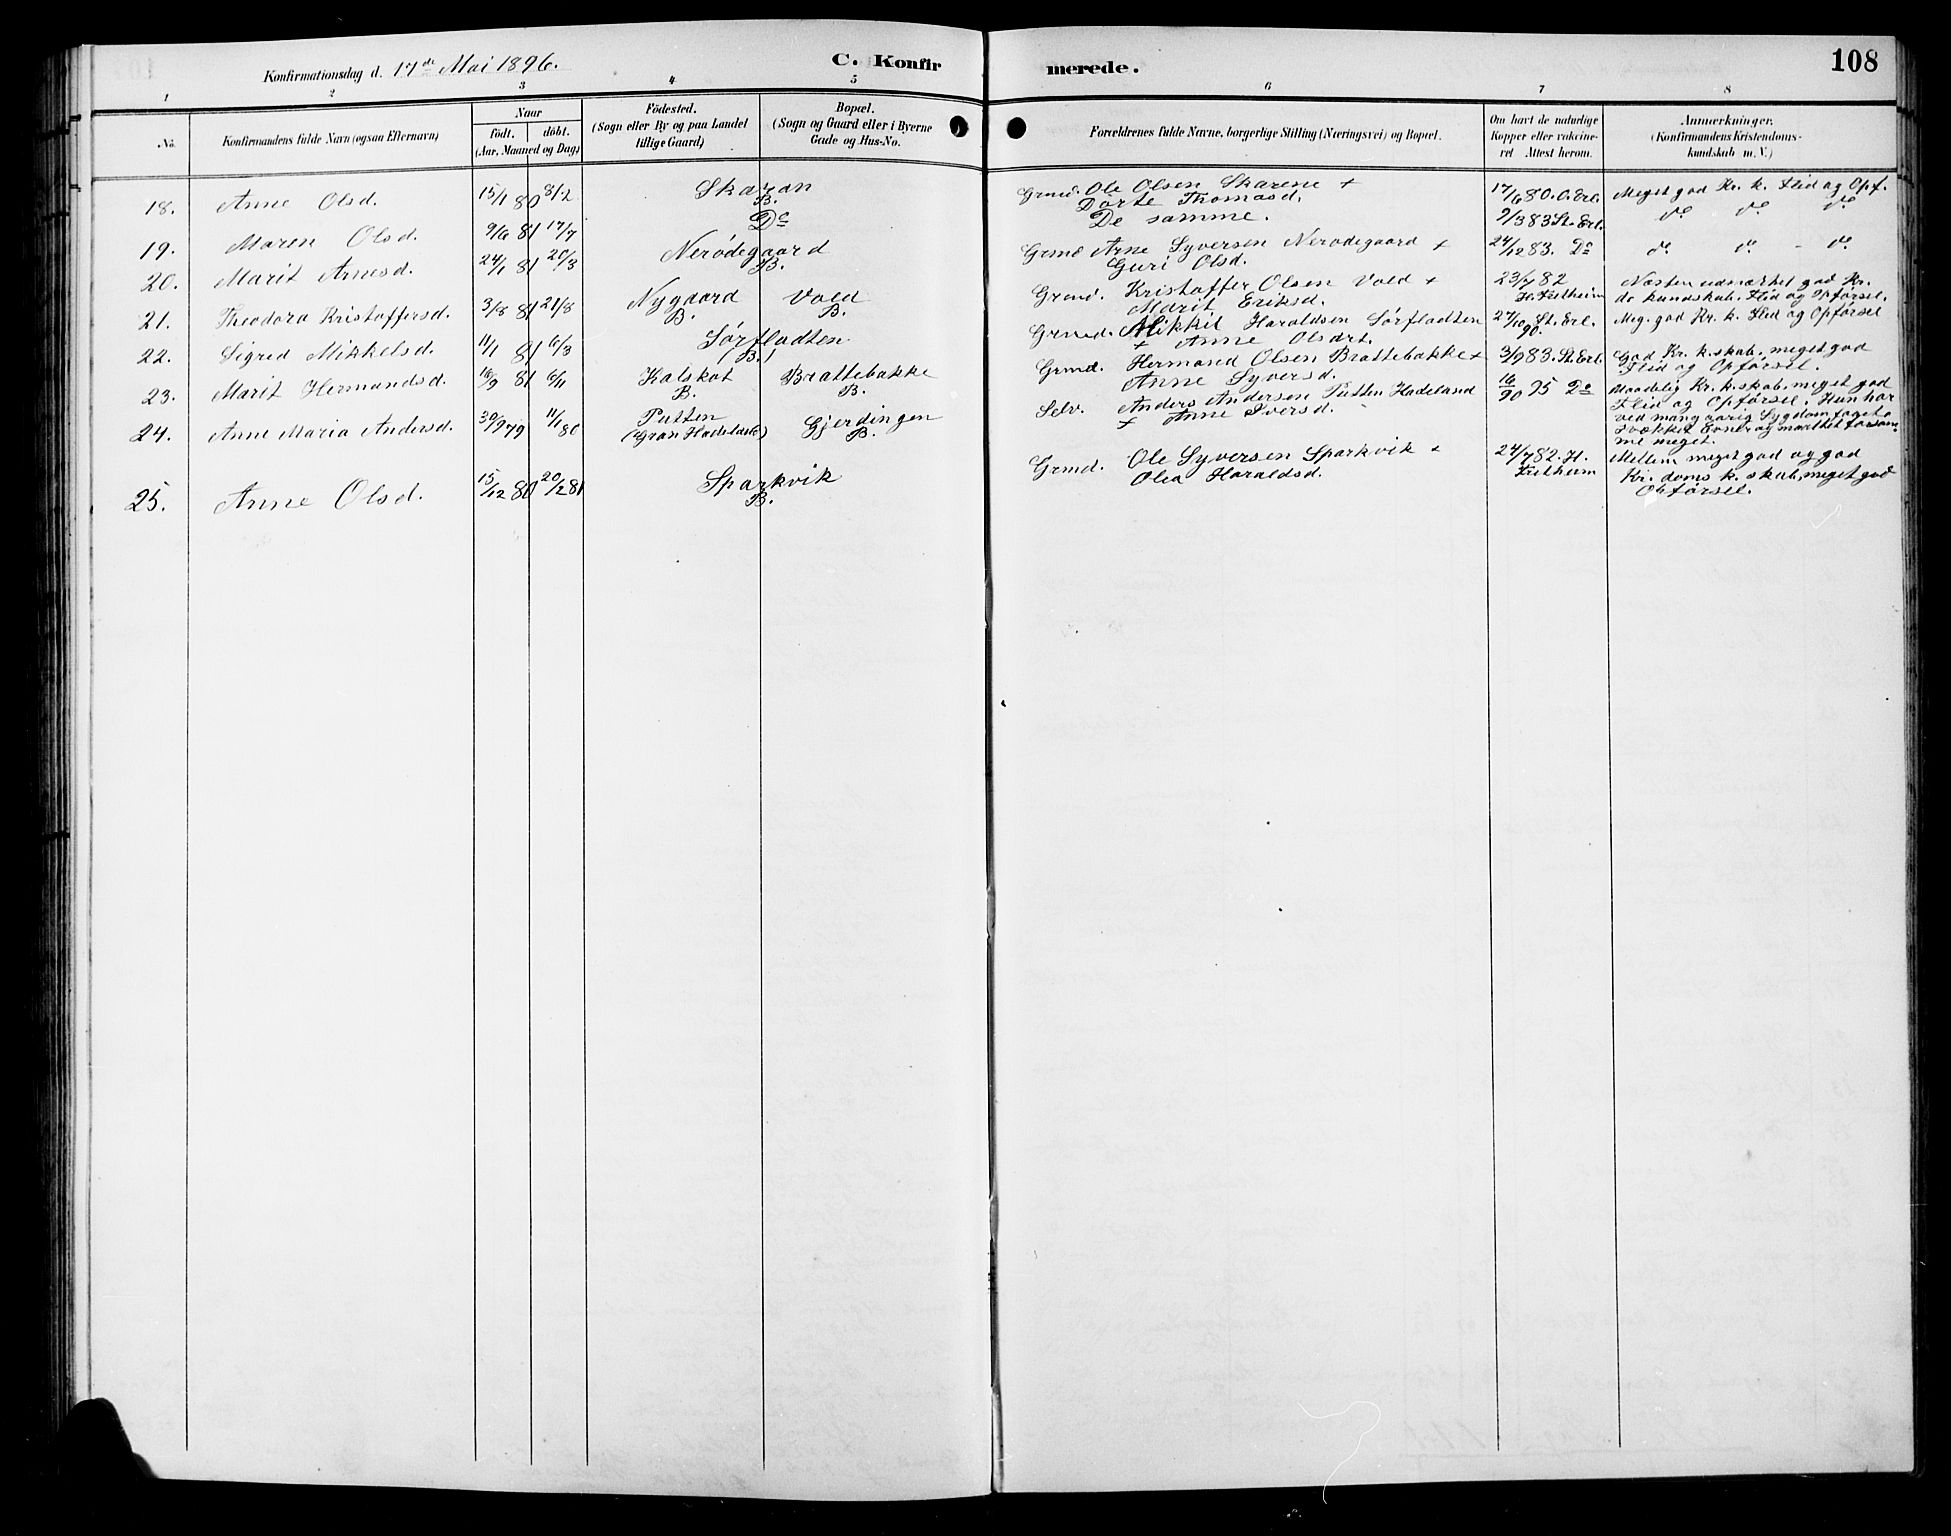 Konfirmationsdag d. 17de Mai 1896.
C. Konfirmerede.
108
1 2 3 4 5 6 7 8
No.
Konfirmandens fulde Navn (ogsaa Efternavn)
Naar
födt. döbt.
(Aar, Maaned og Dag)
Födested.
(Sogn eller By og paa Landet
tillige Gaard)
Bopæl.
(Sogn og Gaard eller i Byerne
Gade og Hus-No.
Forældrenes fulde Navne, borgerlige Stilling (Næringsvei) og Bopæl.
Om havt de naturlige
Kopper eller vakcine-
ret Attest herom.
Anmærkninger.
(Konfirmandens Kristendoms-
kundskab m. V.)
18. Anne Olsd. 15/1 80 8/2 Skaran B. Grmd. Ole Olsen Skarene + 17/6 80. O. Erl. Meget god Kr. k. Flid og Opf.
Dorte Thomasd.
19. Maren Olsd. 9/6 81 17/7 Do De samme. 9/3 83 St. Erl. do do do
20. Marit Arnesd. 24/1 81 20/3 Nerødegaard B. Grmd Arne Syversen Nerødegaard + 24/12 83. Do do do - do
Guri Olsd.
21. Theodora Kristoffersd. 3/8 81 21/8 Nygaard B. Vold B. Grmd. Kristoffer Olsen Vold + 23/7 82 Næsten udmærket god Kr.
Marit Eriksd. H. Feltheim do kundskab. Flid og Opførsel.
22. Sigrid Mikkelsd. 11/1 81 6/3 Sørfladten (B.) Grmd. Mikkil Haraldsen Sørfladten 27/10 90. St. Erl. Meg. god Kr. k. Flid og Opførsel
+ Anne Olsdt.
23. Marit Hermandsd. 16/9 81 6/11 Kalskot B. Brattebakke B. Grmd. Hermand Olsen Brattebakke + 3/9 83. St. Erl. God Kr. k. skab, meget god
Anne Syversd. Flid og Opførsel.
24. Anne Maria Andersd. 30/9 79 11/1 80 Putten (Gran Hadeland) Gjerdingen B. Selv. Anders Andersen Putten Hadeland 16/90 95 Do Maadelig Kr. k. skab, meget god
+ Anne Iversd. Flid og Opførsel. Hun har
ved mangaarig Sygdom faaet
svækket Evner og maattet forsøm-
me meget.
25. Anne Olsd. 15/12 80 20/2 81 Sparkvik B. Grmd. Ole Syversen Sparkvik + 24/7 82. H. Mellem meget god og god
Olea Haraldsd. Feltheim Kr. doms k. skab, meget god
Opførsel.